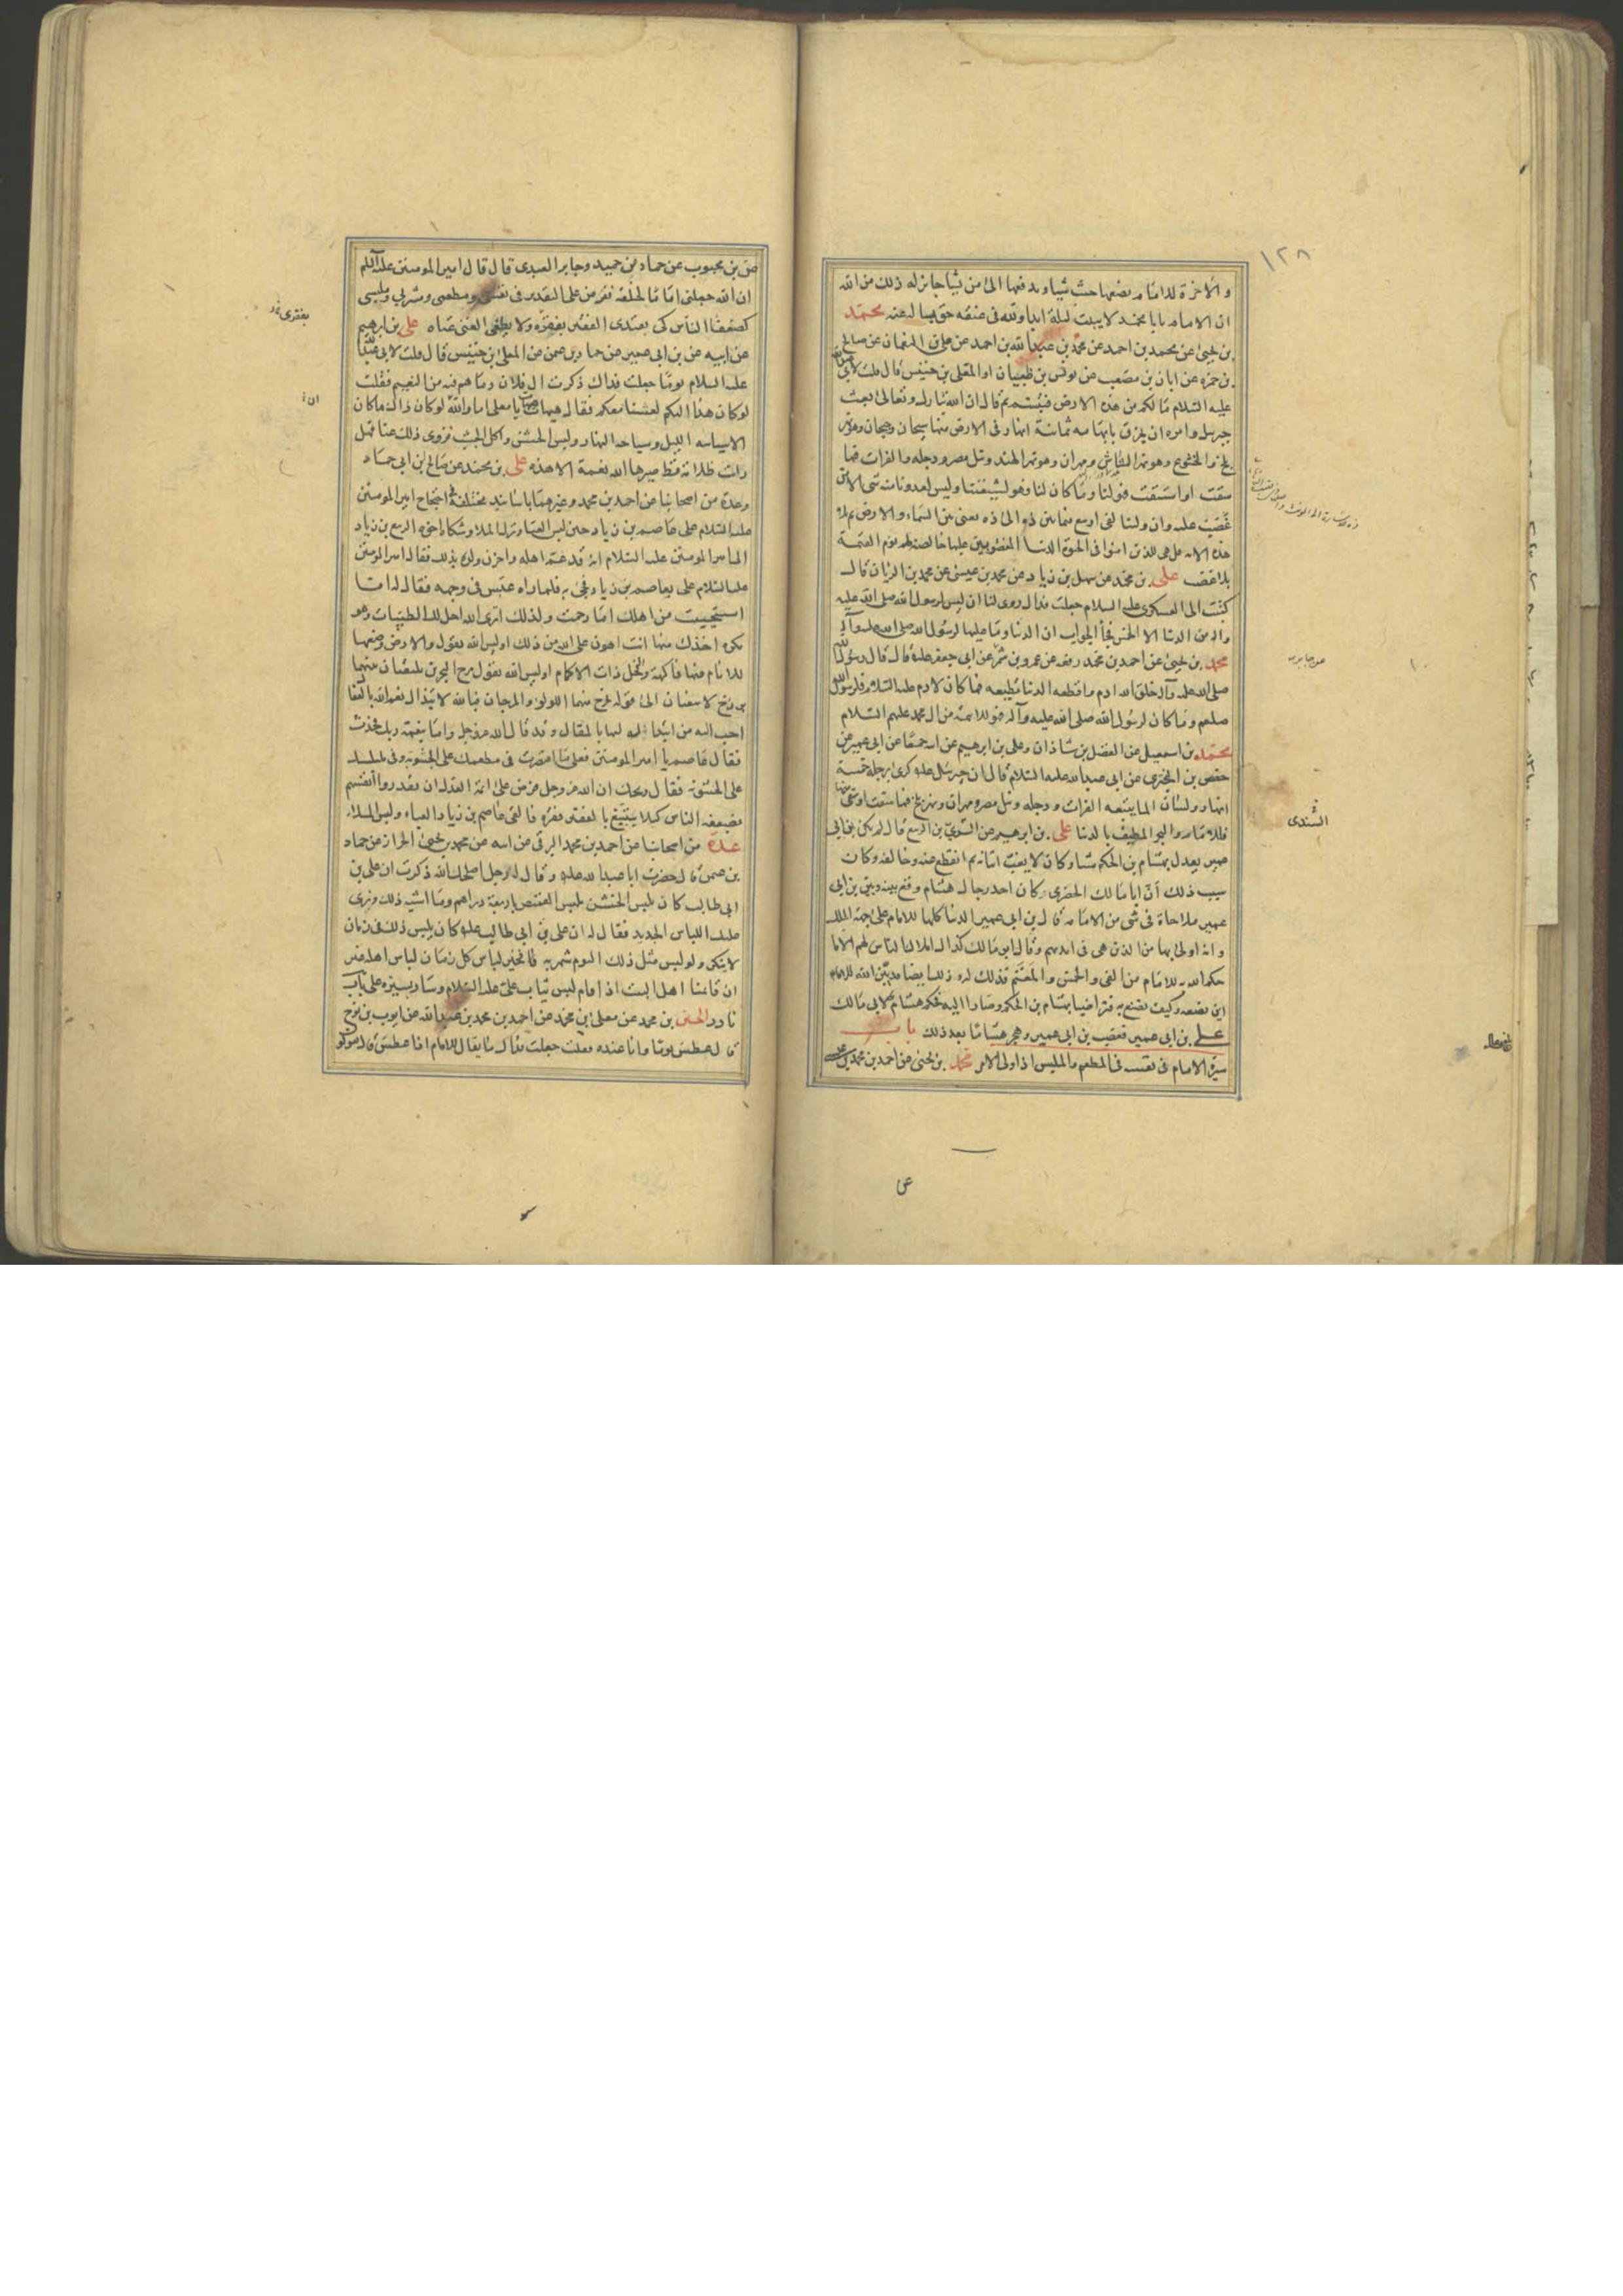 ١٢٨
والاخرة للامام يضعها حيث يشا ويدفعها الى من يشا جايز له ذلك من الله
ان الامام يابا محمد لا يبيت ليلة ابدا ولله فى عنقه حق يساله عنه محمد
بن يحيى عن محمد بن احمد عن محمد بن عبدالله بن احمد عن على بن النعمان عن صالح
بن حمزه عن ابان بن مصعب عن يونس بن ظبيان او المعلى بن خنيس قال قلت لابى عبدالله
عليه السلام ما لكم من هذه الارض فتبسم ثم قال ان الله تبارك وتعالى بعث
جبرئيل وامره ان يخرق بابهامه ثمانية انهار فى الارض منها سيحان وجيحان وهو نهر
بلخ والخشوع وهو نهر الشاش ومهران وهو نهر الهند ونيل مصر ودجله والفرات فما
سقت او استقت فهو لنا وما كان لنا فهو لشيعتنا وليس لعدونا منه شى الا ما
غصب عليه وان ولينا لفى اوسع فيما بين ذه الى ذه يعنى بين السماء والارض ثم تلا
هذه الايه قل هى للذين امنوا فى الحيوة الدنيا المغصوبين عليها خالصة لهم يوم القيمة
بلا غصب على بن محمد عن سهل بن زياد عن محمد بن عيسى عن محمد بن الريان قال
كتبت الى العسكرى عليه السلام جعلت فداك روى لنا ان ليس لرسول الله صلى الله عليه
واله من الدنيا الا الخمس فجأ الجواب ان الدنيا وما عليها لرسول الله صلى الله عليه وآله
محمد بن يحيى عن احمد بن محمد رفعه عن عمرو بن شمر عن ابى جعفر عليه قال قال رسول الله
صلى الله عليه وآله خلق الله ادم واقطعه الدنيا قطيعه فما كان لادم عليه السلام فلرسول الله
صلعم وما كان لرسول الله صلى الله عليه وآله فهو للائمة من ال محمد عليهم السلام
محمد بن اسمعيل عن الفضل بن شاذان وعلى بن ابرهيم عن ابيه جميعا عن ابى عمير عن
حفص بن البخترى عن ابى عبدالله عليه السلام قال ان جبرئيل عليه كرى برجله خمسة
انهار ولسان الما يتبعه الفرات ودجله ونيل مصر ومهران ونهر بلخ فما سقت او سقى منها
فللامام والبحر المطيف بالدنيا على بن ابرهيم عن السرىّ بن الربيع قال لم يكن بن ابى
عمير يعدل بهشام بن الحكم شيا وكان لا يغب اتيانه ثم انقطع عنه وخالفه وكان
سبب ذلك أنّ ابا مالك الحضرى كان احد رجال هشام وقع بينه وبين بن ابى
عمير ملاحاة فى شى من الامامه قال بن ابى عمير الدنيا كلها للامام على جهة الملك
وانه اولى بها من الذين هى فى ايديهم وقال ابو مالك كذلك املاك الناس لهم الا ما
حكم الله به للامام من الفى والخمس والمغنم فذلك له وذلك ايضا قد بيّن الله للامام
اين يضعه وكيف يصنع به فتراضيا بهشام بن الحكم وصارا اليه فحكم هشام لابى مالك
على بن ابى عمير فغضب بن ابى عمير وهجر هشاما بعد ذلك باب
سيرة الامام فى نفسه فى المطعم والملبس اذا ولى الامر محمد بن يحيى عن احمد بن محمد بن عيسى
عن جابر
السّندى
عن
عن بن محبوب عن حماد بن حميد وجابر العبدى قال قال امير المومنين عليه السلام
ان الله جعلنى اماما لخلقه ففرض على التقدير فى نفسى ومطعمى ومشربى وملبسى
كضعفا الناس كى يقتدى الفقير بفقره ولا يطغى الغنى غناه على بن ابرهيم
عن ابيه عن بن ابى عمير عن حماد بن عمن عن المعلى بن خنيس قال قلت لابى عبدالله
عليه السلام يوما جعلت فداك ذكرت ال فلان وما هم فيه من النعيم فقلت
لو كان هذا اليكم لعشنا معكم فقال هيهات يا معلى اما والله لو كان ذاك ما كان
الا سياسه الليل وسياحه النهار ولبس الخشن واكل الجشب فزوى ذلك عنا فهل
رايت ظلامة قط صيرها الله نعمة الا هذه على بن محمد عن صالح بن ابى حماد
وعدة من اصحابنا عن احمد بن محمد وغيرهما باسانيد مختلفة فى احتجاج امير المومنين
عليه السلام على عاصم بن زياد حين لبس العبا وترك الملا وشكاه اخوه الربيع بن زياد
الى امير المومنين عليه السلام انه قد غم اهله واحزن ولده بذلك فقال امير المومنين
عليه السلام على بعاصم بن زياد فجى به فلما راه عبس فى وجهه فقال له اما
استحييت من اهلك اما رحمت ولدك اترى الله احل لك الطيبات وهو
يكره اخذك منها انت اهون على الله من ذلك اوليس الله يقول والارض وضعها
للانام فيها فاكهة والنخل ذات الاكمام اوليس الله يقول مرج البحرين يلتقيان بينهما
برزخ لا يبغيان الى قوله يخرج منهما اللولو والمرجان فبالله لابتذال نعم الله بالفعال
احب اليه من ابتذاله لها بالمقال وقد قال الله عز وجل واما بنعمة ربك فحدث
فقال عاصم يا امير المومنين فعلى ما اقتصرت فى مطعمك على الجشوبة وفى ملبسك
على الخشونة فقال ويحك ان الله عز وجل فرض على ائمة العدل ان يقدروا أنفسهم
بضعفه الناس كيلا يتبيّغ بالفقير فقره فالقى عاصم بن زياد العباء ولبس الملاء
عدة من اصحابنا عن احمد بن محمد البرقى عن ابيه عن محمد بن يحيى الخزاز عن حماد
بن عثمن قال حضرت ابا عبدالله عليه وقال له رجل اصلحك الله ذكرت ان على بن
ابى طالب كان يلبس الخشن يلبس القميص باربعة دراهم وما اشبه ذلك ونرى
عليك اللباس الجديد فقال له ان على بن ابى طالب عليه كان يلبس ذلك فى زمان
لا ينكر ولو لبس مثل ذلك اليوم شهر به فخير لباس كل زمان لباس اهله غير
ان قائمنا اهل البيت اذا قام لبس ثياب على عليه السلام وسار بسيرة على باب
نادر الحسين بن محمد عن معلى بن محمد عن احمد بن محمد بن عبدالله عن ايوب بن نوح
قال عطس يوما وانا عنده فقلت جعلت فداك ما يقال للامام اذا عطس قال يقولو